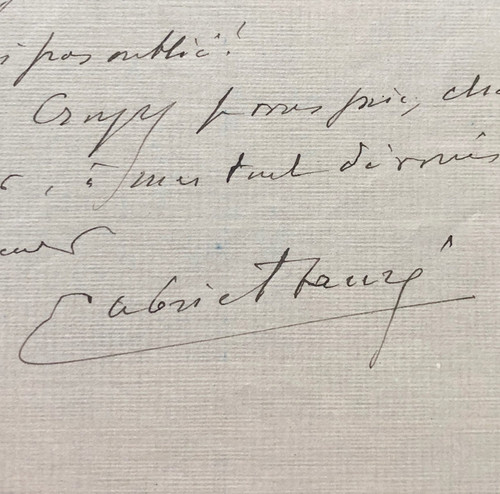 pas oublié!
Croyez je vous prie, che
, à mes tout dévoués
Gabriel Fauré